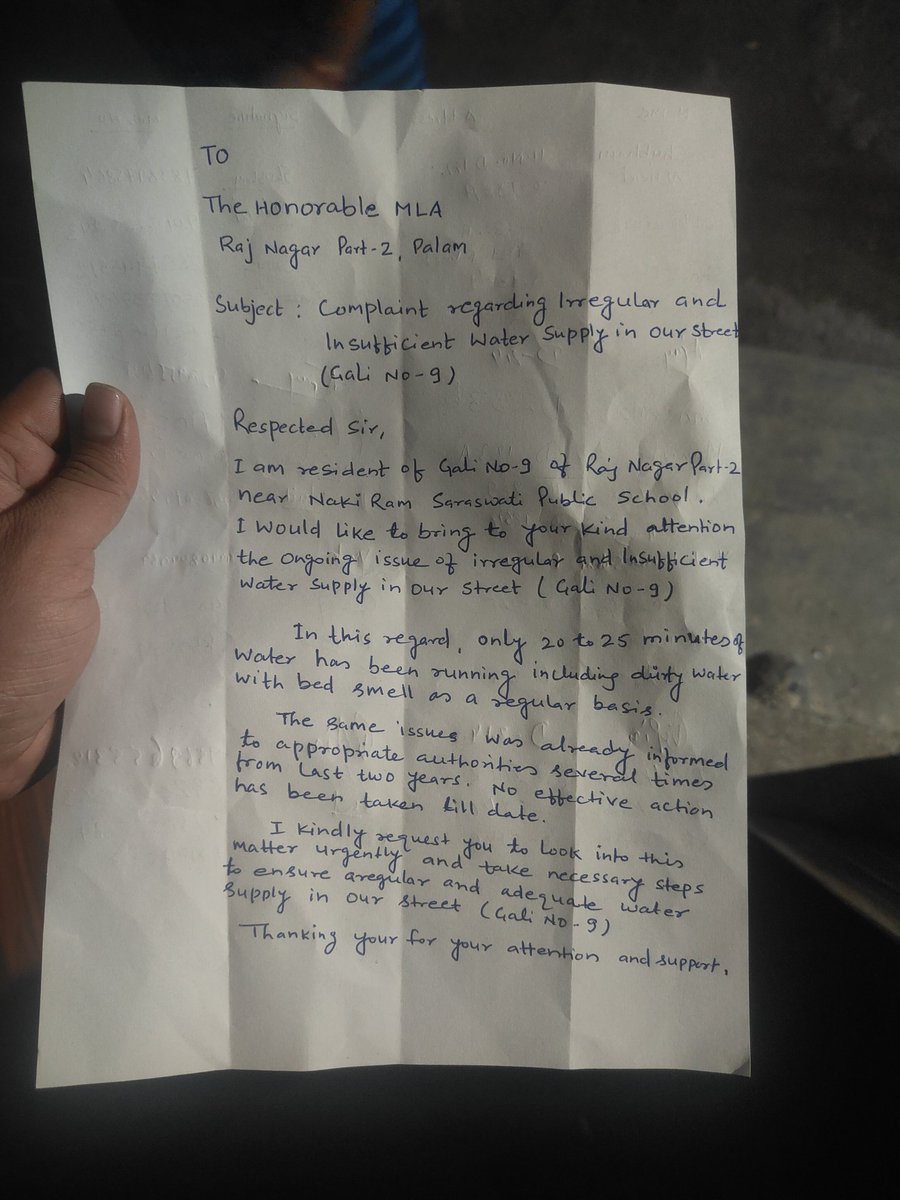 To
The Honorable MLA
Raj Nagar Part-2, Palam
Subject : Complaint regarding Irregular and
Insufficient Water Supply in our Street
(Gali No-9)
Respected Sir,
I am resident of Gali No-9 of Raj Nagar Part-2
near Naki Ram Saraswati Public School.
I would like to bring to your kind attention
the ongoing issue of irregular and Insufficient
water supply in our street (Gali No-9)
In this regard, only 20 to 25 minutes of
water has been running including dirty water
with bed smell as a regular basis.
The same issues was already informed
to appropriate authorities several times
from last two years. No effective action
has been taken till date.
I kindly request you to look into this
matter urgently and take necessary steps
to ensure aregular and adequate water
supply in our street (Gali No-9)
Thanking your for your attention and support.